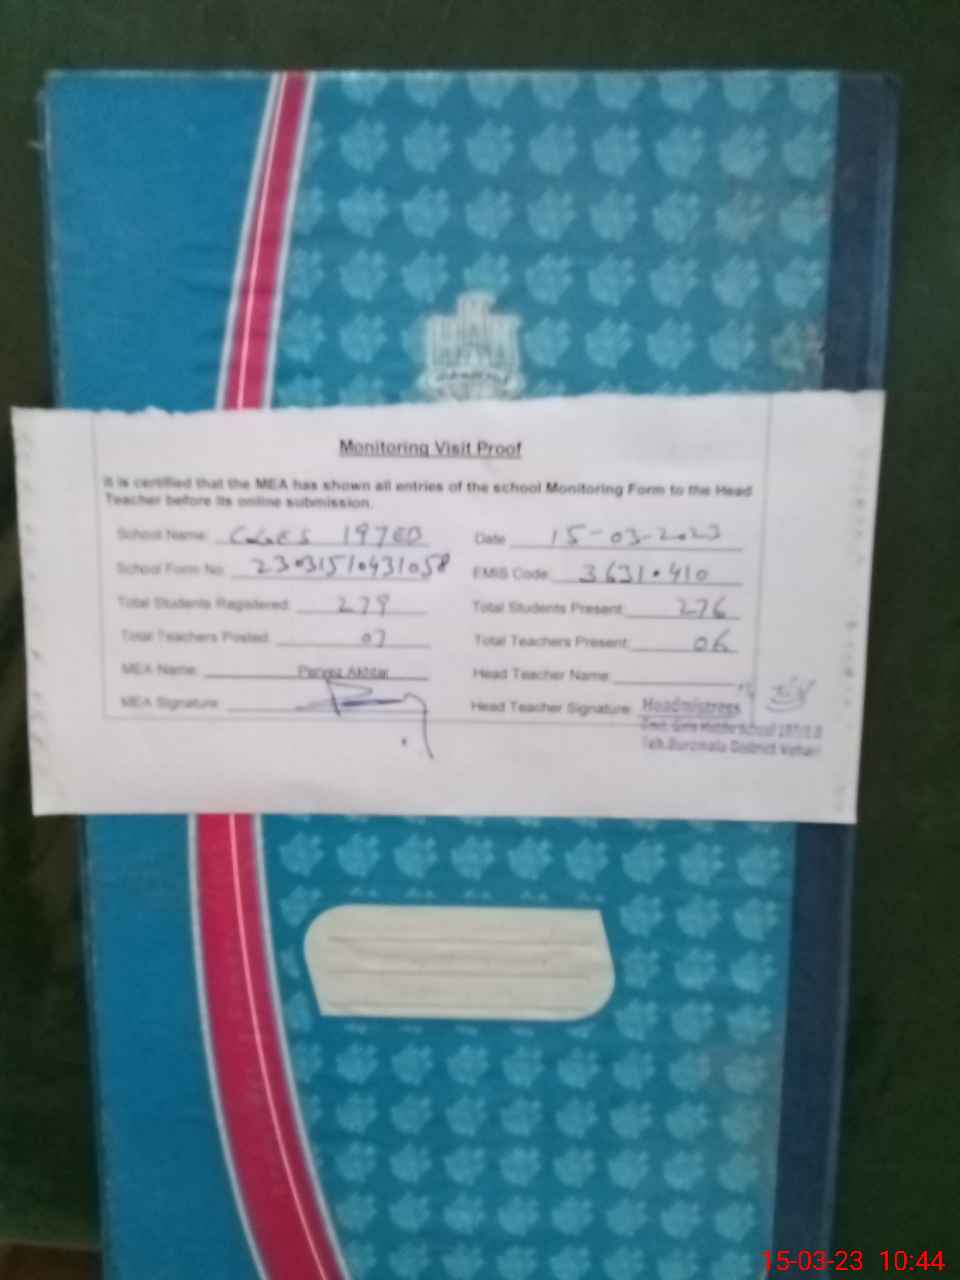 Monitoring Visit Proof
It is certified that the MEA has shown all entries of the school Monitoring Form to the Head
Teacher before its online submission.
School Name: GGES 197EB Date 15-03-2023
School Form No. 23031510431058 EMIS Code: 36310410
Total Students Registered: 279 Total Students Present: 276
Total Teachers Posted: 07 Total Teachers Present: 06
MEA Name: Pervez Akhtar Head Teacher Name:
MEA Signature: Head Teacher Signature: Headmistress
Govt. Girls Middle School 197/E.B
Teh. Burewala District Vehari
15-03-23 10:44